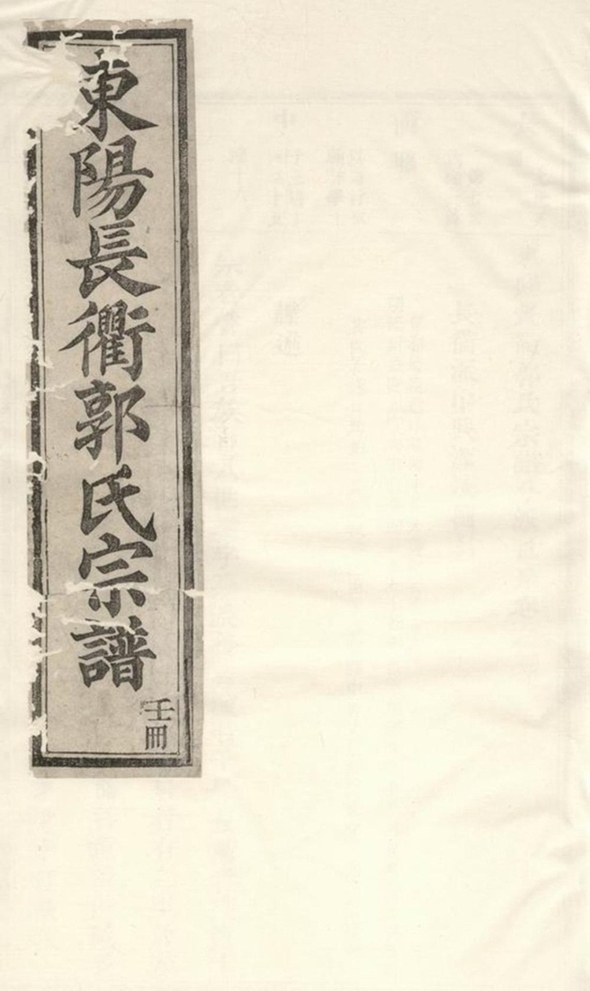 東陽長衢郭氏宗譜
壬冊